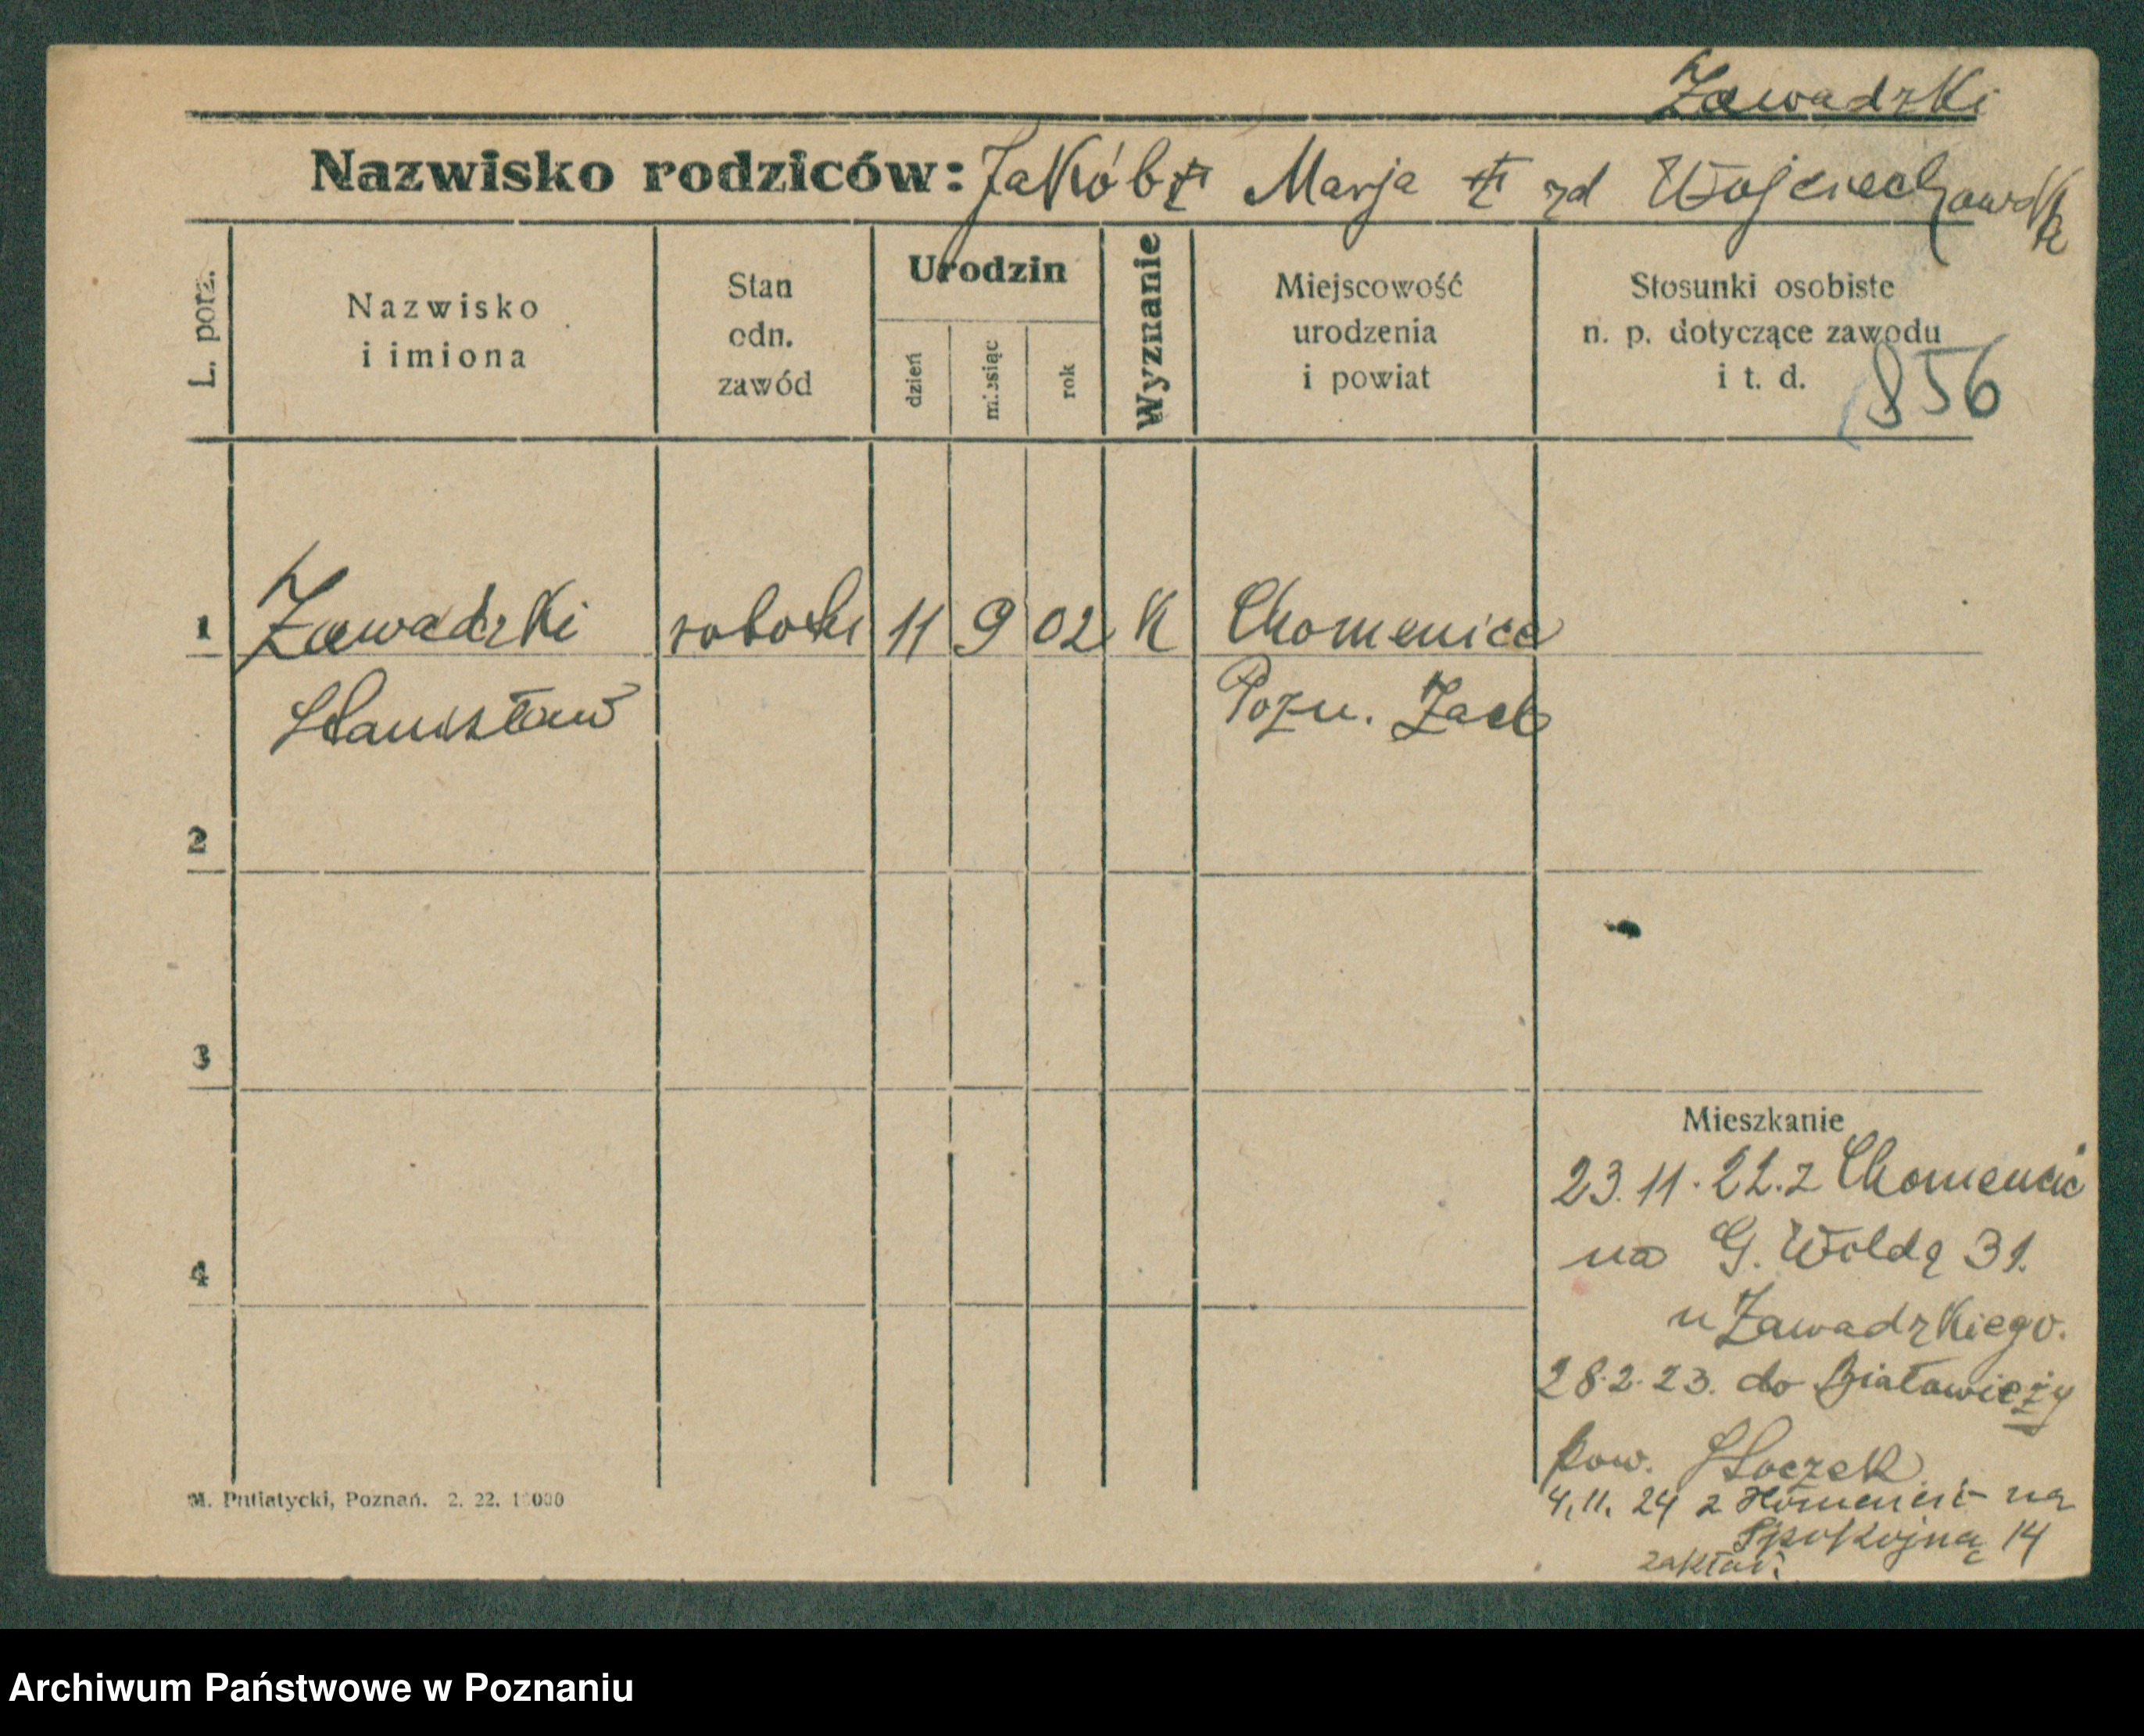 Zawadzki
Nazwisko rodziców: Jakób † Marja † zd Wojciechowska
L. porz.
Nazwisko
i imiona
Stan
odn.
zawód
Urodzin
dzień
miesiąc
rok
Wyznanie
Miejscowość
urodzenia
i powiat
Stosunki osobiste
n. p. dotyczące zawodu
i t. d.
856
1 Zawadzki robotn 11 9 02 K Chomenice
Stanisław Pozn. Zach
2
3
4
Mieszkanie
23.11.22. z Chomencic
na G. Wildę 31.
u Zawadzkiego.
28.2.23. do Białowieży
pow.
4.11. 24 z na
Spokojną 14
M. Putiatycki, Poznań. 2. 22. 10000
Archiwum Państwowe w Poznaniu